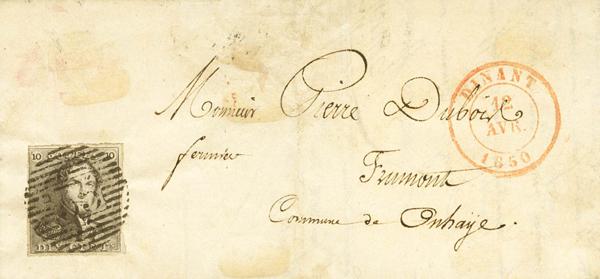 DINANT
12
AVR.
1850
Monsieur Pierre Dubois
fermier
Frumont
Commune de Onhaye.
10 10